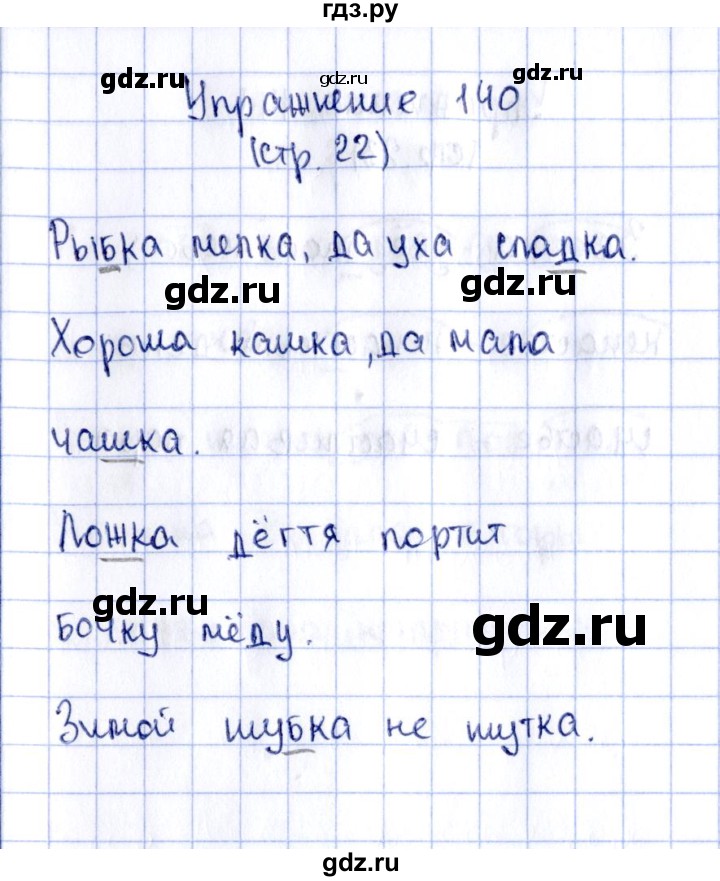 гдз.ру
gdz.ru
gdz.ru
gdz.ru
Упражнение 140
(стр. 22)
Рыбка мелка, да уха сладка.
gdz.ru
gdz.ru
Хороша кашка, да мала
чашка.
Ложка дёгтя портит
gdz.ru
gdz.ru
бочку мёду.
Зимой шубка не шутка.
gdz.ru